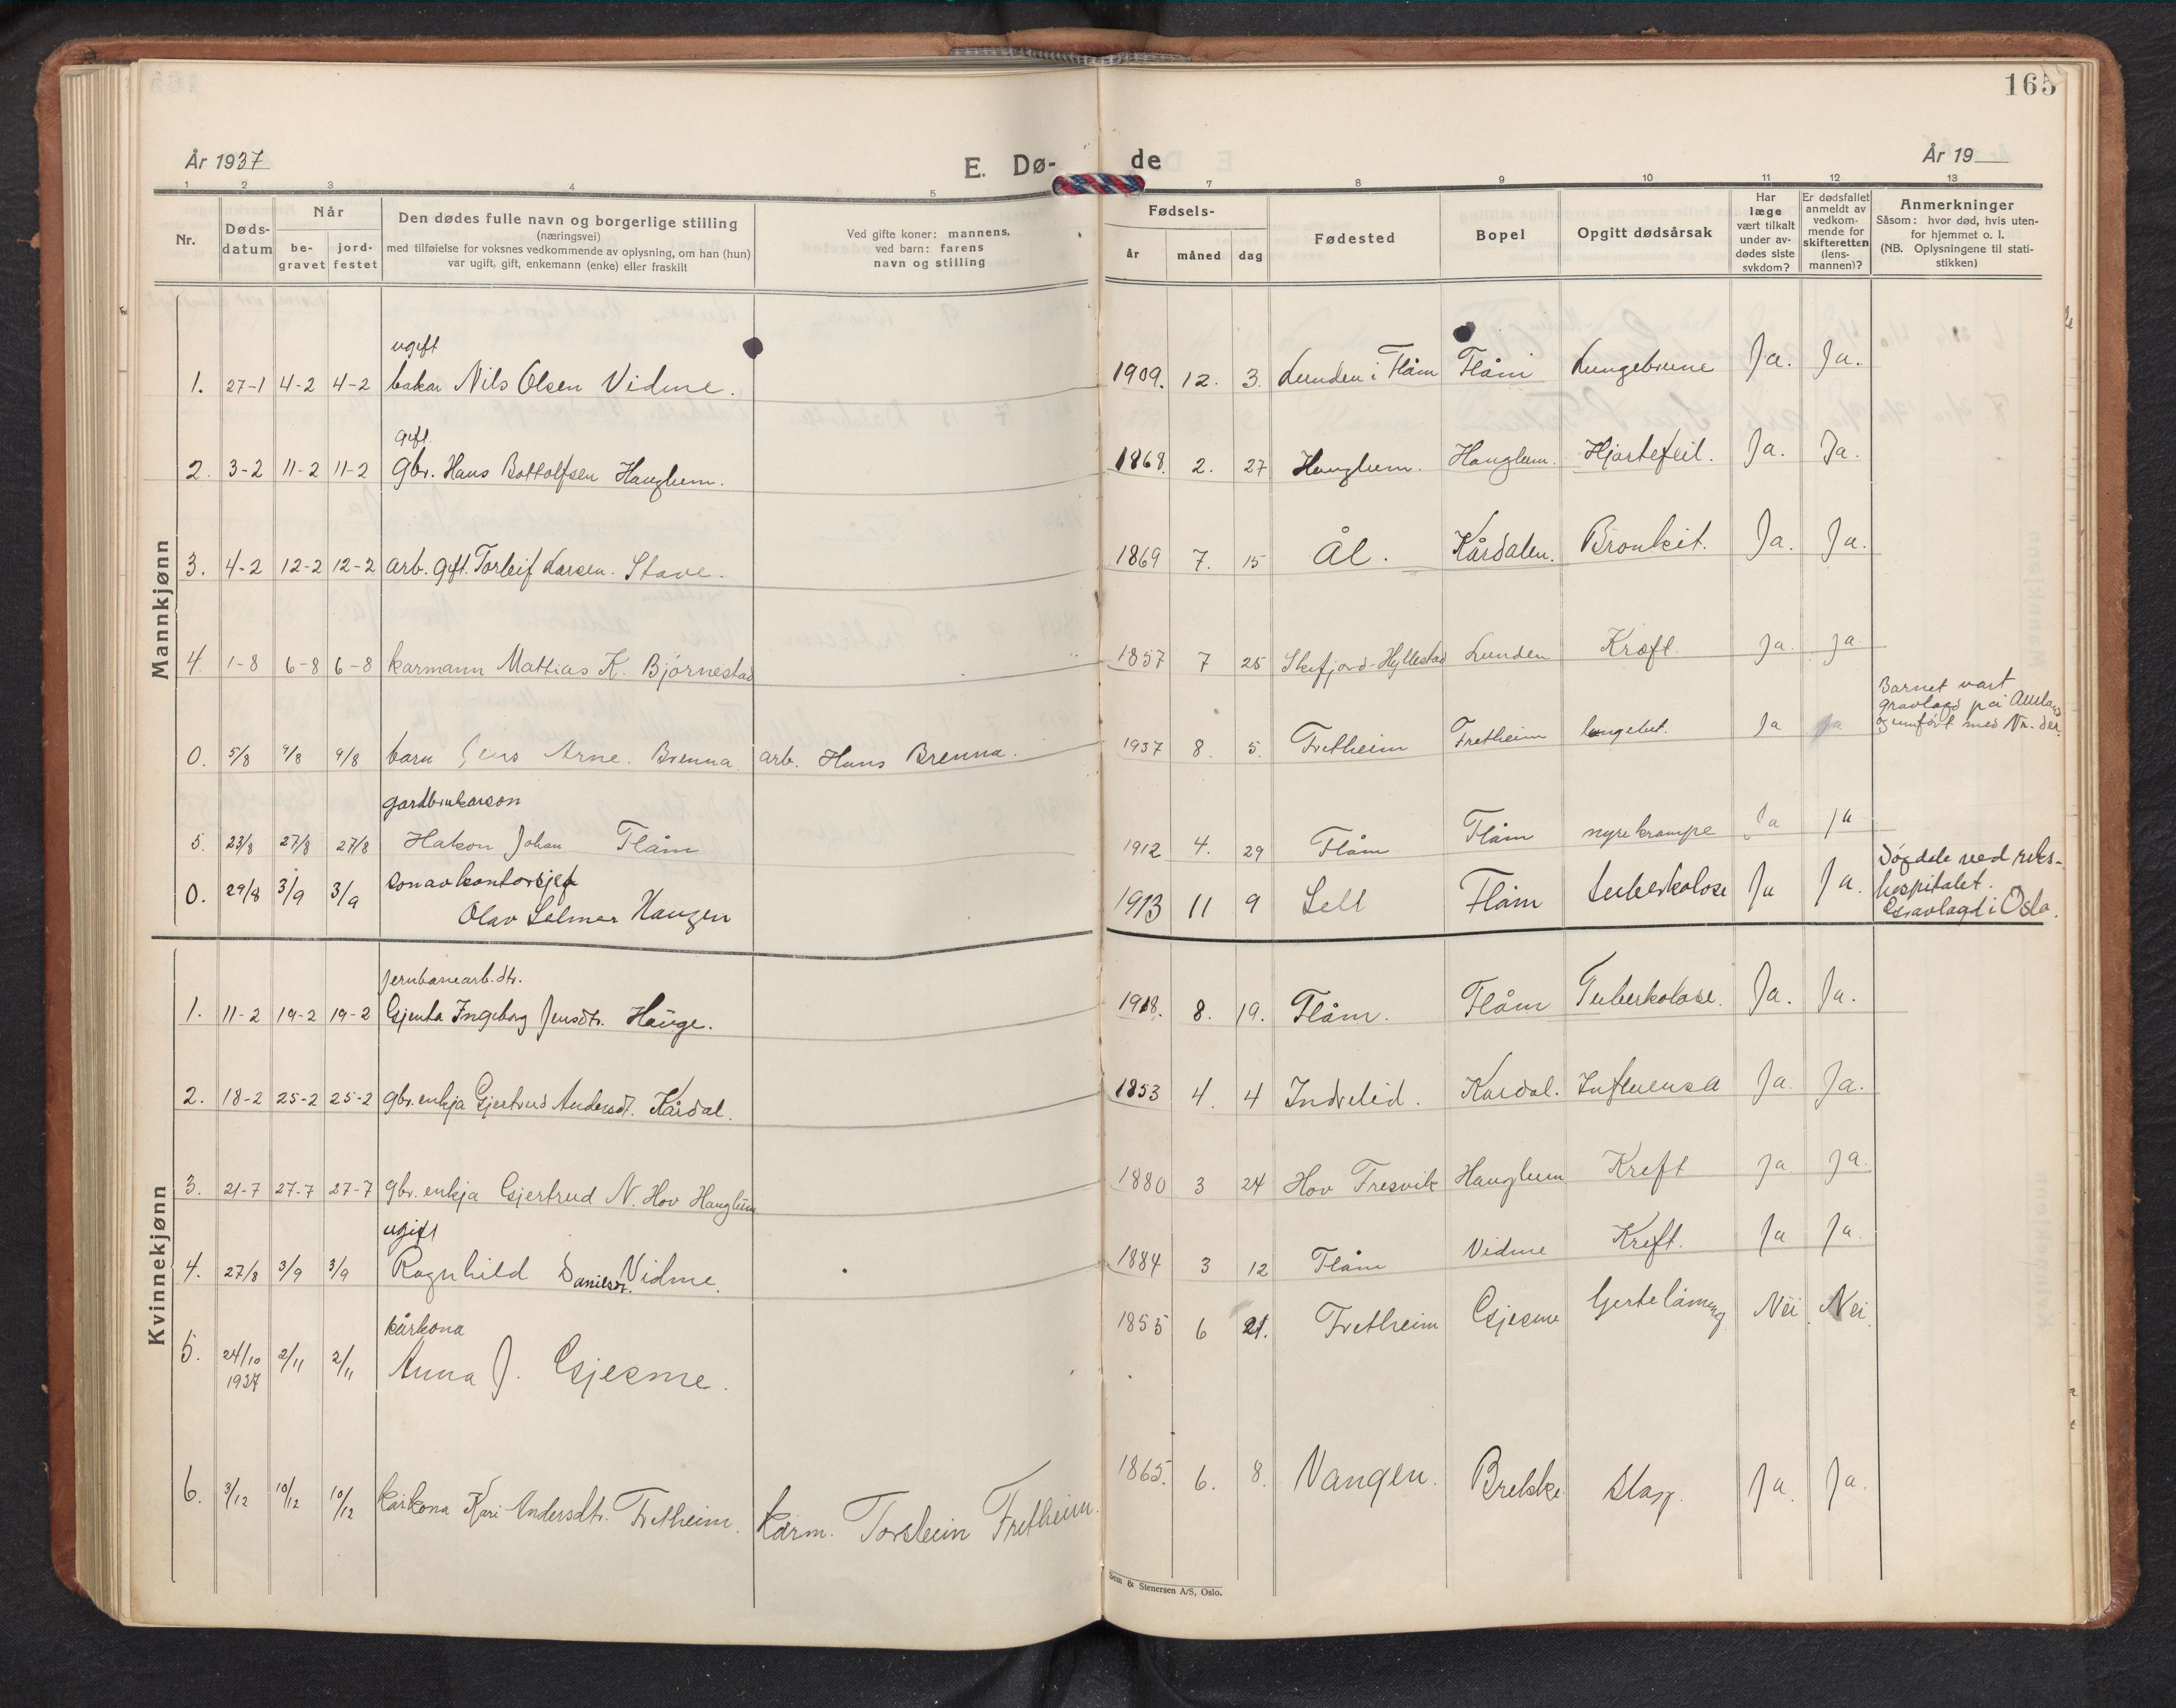 165
År 1937 E. Dø- de År 19
1 2 3 4 5 7 8 9 10 11 12 13
Nr. Døds-datum Når be-gravet jord-festet Den dødes fulle navn og borgerlige stilling (næringsvei) med tilføielse for voksnes vedkommende av oplysning, om han (hun) var ugift, gift, enkemann (enke) eller fraskilt Ved gifte koner: mannens, ved barn: farens navn og stilling Fødsels- år måned dag Fødested Bopel Opgitt dødsårsak Har læge vært tilkalt under av-dødes siste sykdom? Er dødsfallet anmeldt av vedkom-mende for skifteretten (lens-mannen)? Anmerkninger Såsom: hvor død, hvis uten-for hjemmet o. l. (NB. Oplysningene til stati-stikken)
Mannkjønn
ugift
1. 27-1 4-2 4-2 bakar Nils Olsen Vidme. 1909. 12. 3. Lunden i Flåm Flåm Lungebrune Ja. Ja.
gift
2. 3-2 11-2 11-2 gbr. Hans Bottolfsen Hauglum. 1868. 2. 27 Hauglum. Hauglum. Hjartefeil. Ja. Ja.
3. 4-2 12-2 12-2 arb. gift. Torleif Larsen. Stave. 1869 7. 15 Ål. Kårdalen. Bronkit. Ja. Ja.
4. 1-8 6-8 6-8 karmann Mattias K. Bjørnestad 1857 7 25 Skifjord-Hyllestad Lunden Kreft. Ja. Ja
0. 5/8 9/8 9/8 barn Jens Arne. Brenna. arb. Hans Brenna. 1937 8. 5. Fretheim Fretheim lungebet. Ja Ja Barnet vart gravlagd på og innført med Nr. der.
gardbrukarson
5. 23/8 27/8 27/8 Hakon Johan Flåm 1912 4. 29 Flåm Flåm nyrekrampe Ja ja
0. 29/8 3/9 3/9 son av kontorsjef Olav Selmer Haugen 1913 11 9 Sell Flåm tuberkolose Ja Ja. Døydde ved riks-hospitalet. Gravlagd i Oslo.
Kvinnekjønn
Jernbanearb. dtr.
1. 11-2 19-2 19-2 Gjenta Ingeborg Jensdtr. Hauge. 1918. 8. 19. Flåm. Flåm Tuberkolose. Ja. Ja.
2. 18-2 25-2 25-2 gbr. enkja Gjertrud Andersdt. Kårdal. 1853 4. 4 Indrelid. Kardal. Influensa Ja. Ja.
3. 21-7 27-7 27-7 gbr. enkja Gjertrud N. Hov Hauglum 1880 3 24 Hov Fresvik Hauglum Kreft ja. ja.
ugift
4. 27/8 3/9 3/9 Ragnhild Danielsdt. Vidme. 1884 3 12 Flåm Vidme Kreft. Ja Ja.
kårkona
5. 24/10 1937 2/11 2/11 Anna J. Gjesme. 1855 6 21. Fretheim Gjesme Hjertelåming Nei Nei
6. 3/12 10/12 10/12 kårkona Kari Andersdtr. Fretheim. kårm. Torstein Fretheim. 1865. 6. 8. Vangen. Brekke Slag. Ja. Ja.
Sem & Stenersen A/S, Oslo.